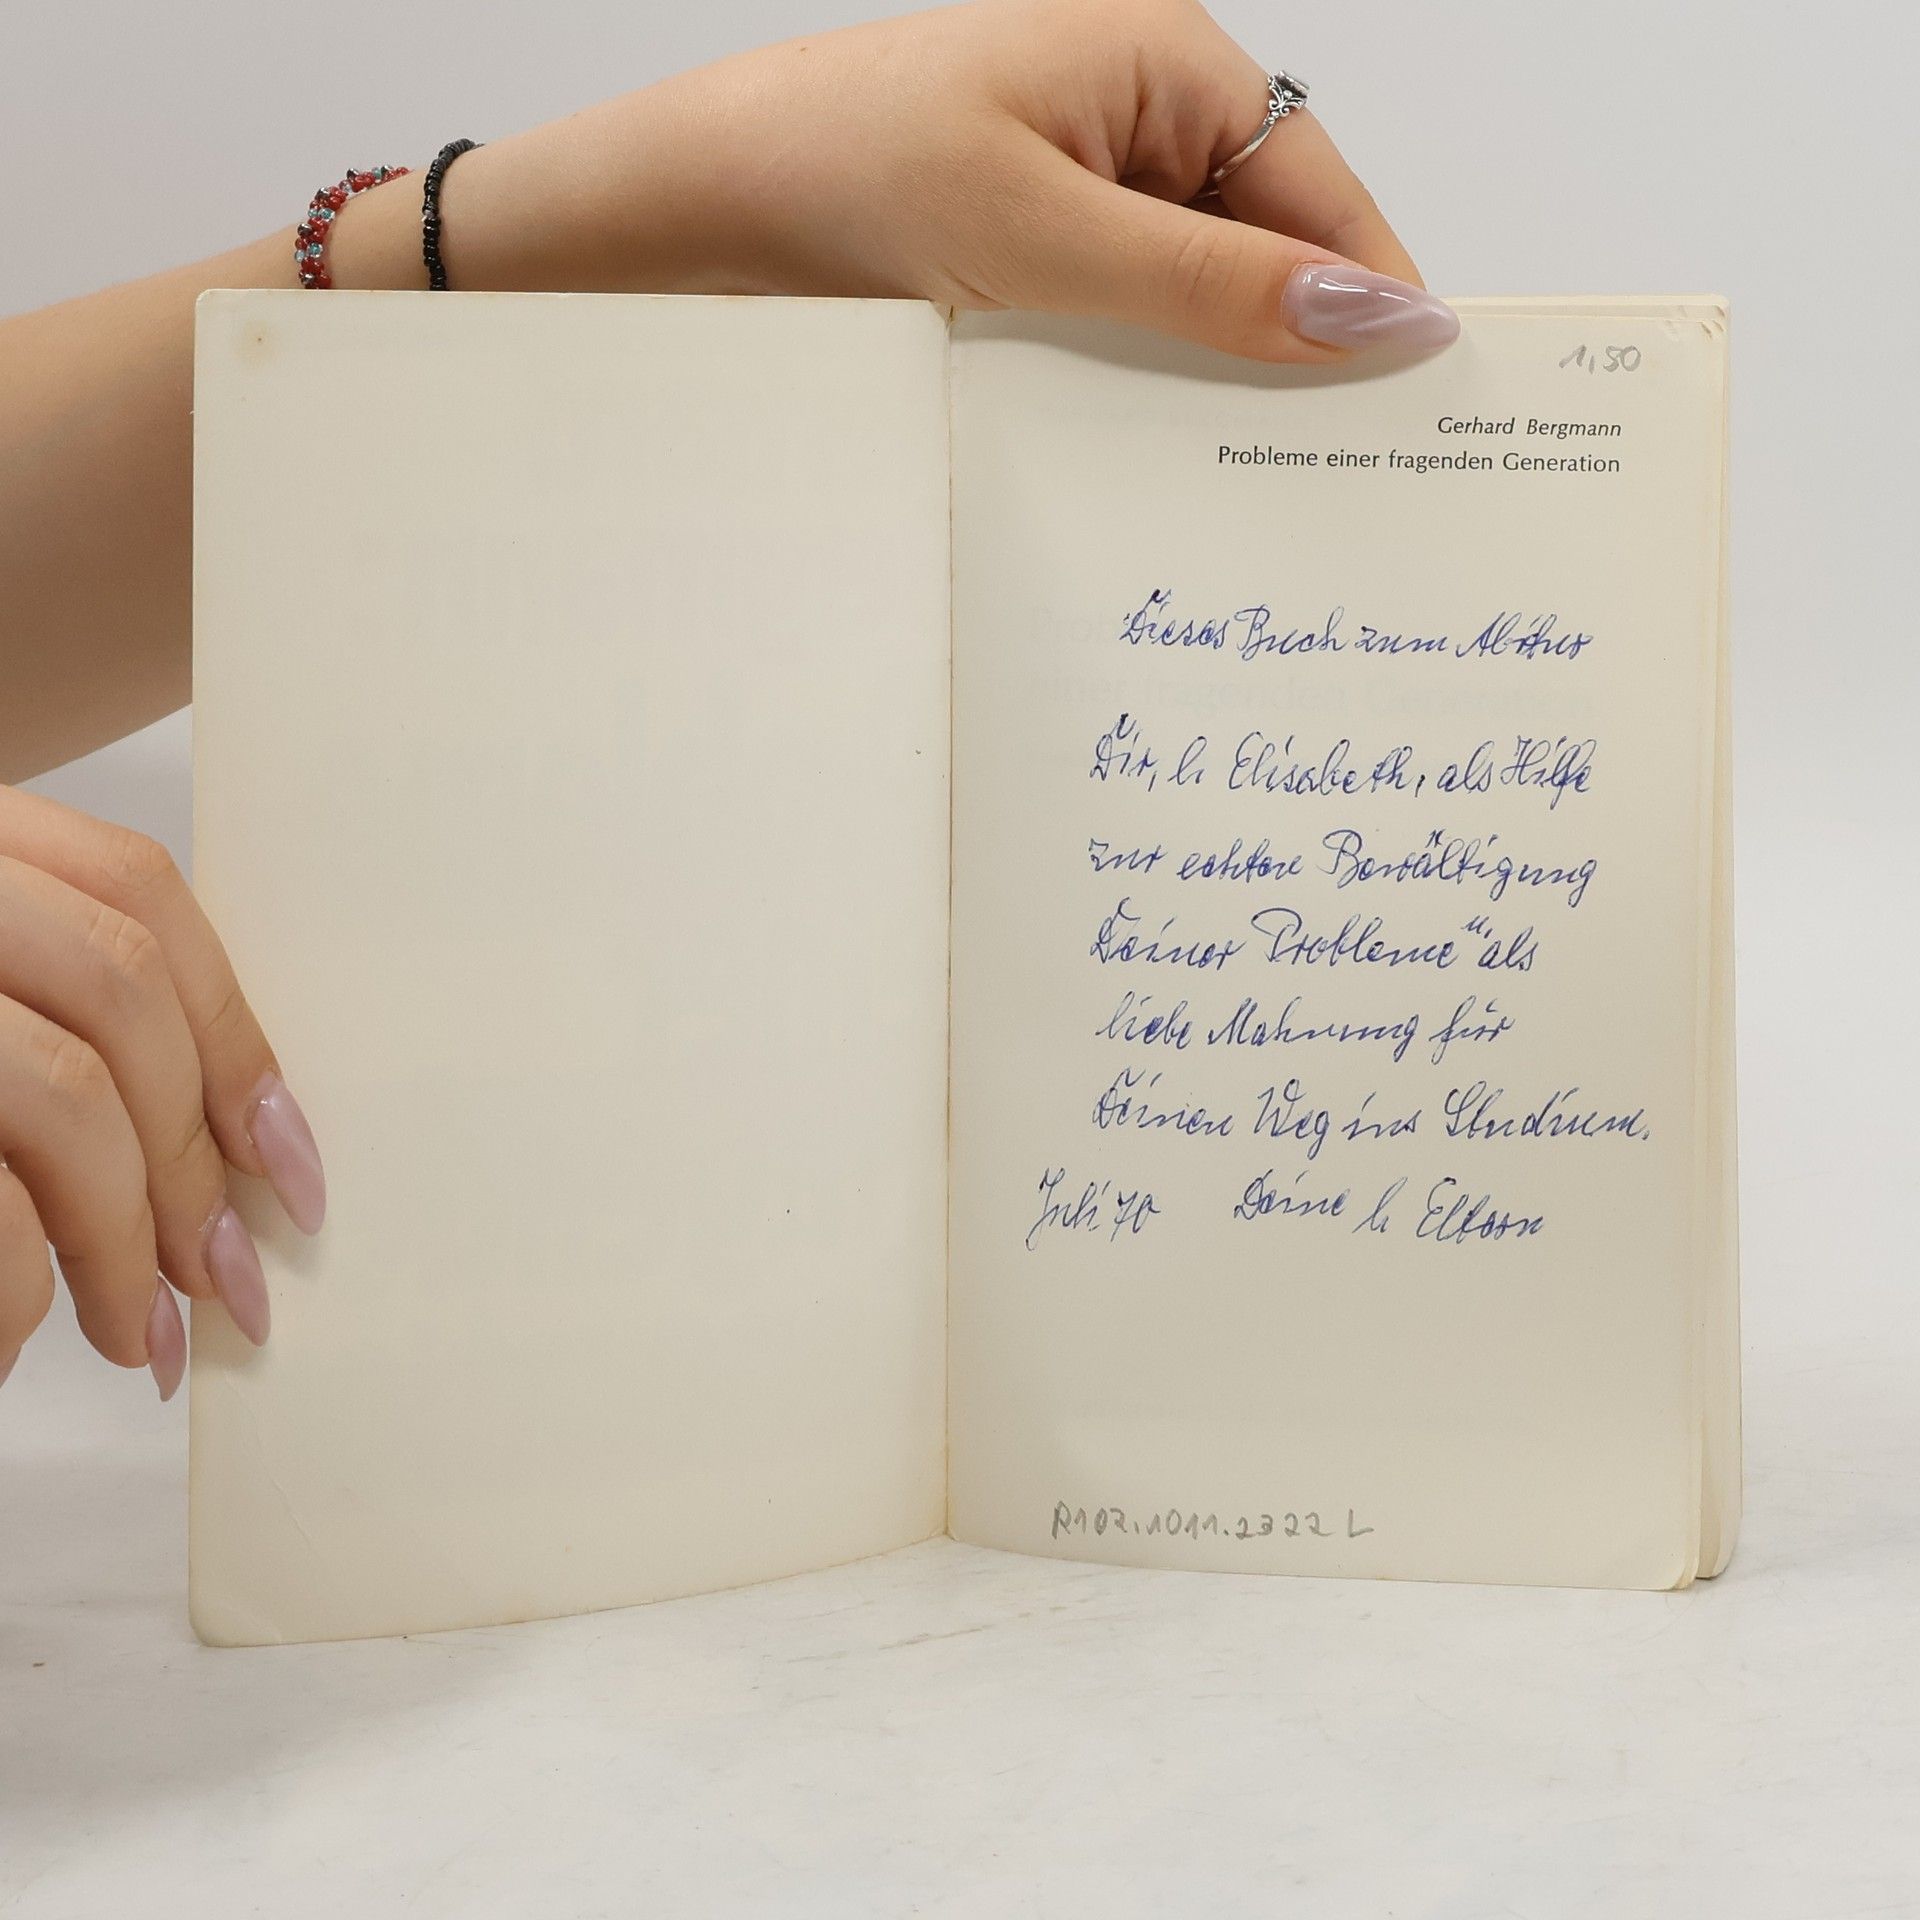 1,50
Gerhard Bergmann
Probleme einer fragenden Generation
Dieses Buch zum Abitur
Dir, l. Elisabeth, als Hilfe
zur echten Bewältigung
Deiner Probleme u. als
liebe Mahnung für
Deinen Weg ins Studium.
Juli 70 Deine l. Eltern
R102.1011.2322 L